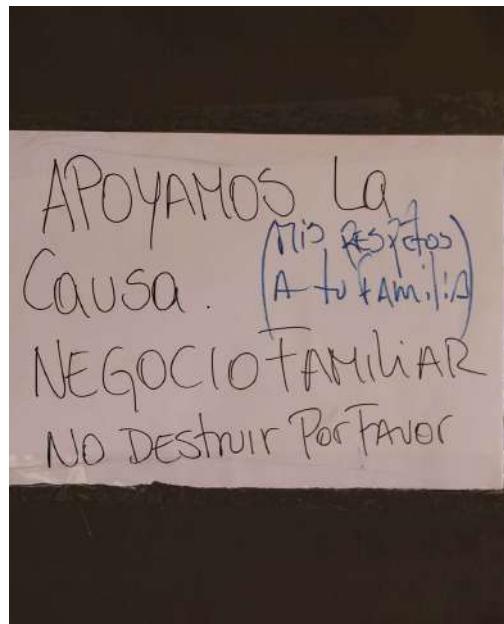 APOYAMOS La
Causa.
(MIS RESPETOS
A tu FAMILIA)
NEGOCIO FAMILIAR
NO DEStruir Por FAVOR